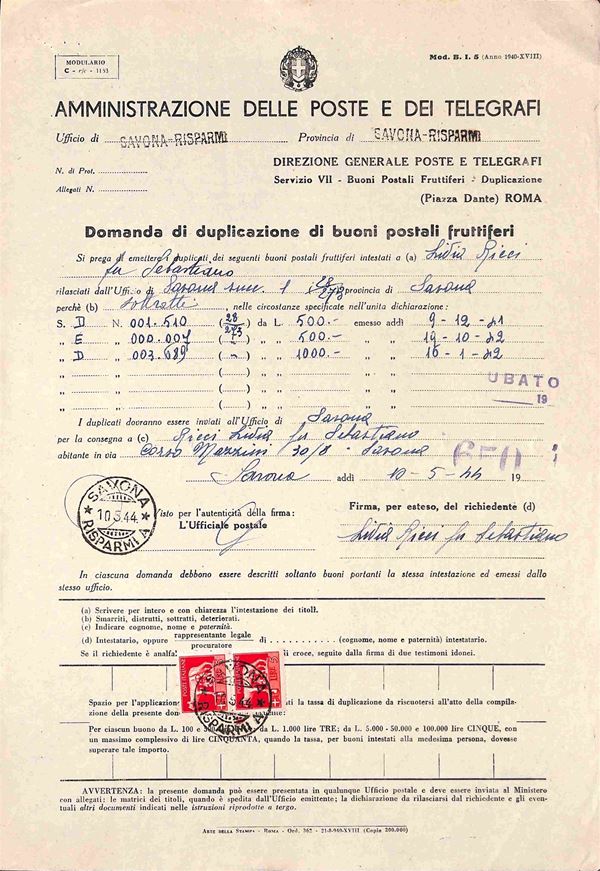 MODULARIO
C - r/c - 1153
Mod. B. I. 5 (Anno 1940-XVIII)
AMMINISTRAZIONE DELLE POSTE E DEI TELEGRAFI
Ufficio di SAVONA-RISPARMI Provincia di SAVONA-RISPARMI
N. di Prot.
Allegati N.
DIREZIONE GENERALE POSTE E TELEGRAFI
Servizio VII - Buoni Postali Fruttiferi - Duplicazione
(Piazza Dante) ROMA
Domanda di duplicazione di buoni postali fruttiferi
Si prega di emettere i duplicati dei seguenti buoni postali fruttiferi intestati a (a) Lidia Ricci
fu Sebastiano
rilasciati dall'Ufficio di Savona succ. 1 28/273 provincia di Savona
perchè (b) sottratti, nelle circostanze specificate nell'unita dichiarazione:
S. D N. 001.510 (28/273) da L. 500.- emesso addì 9-12-41
„ E „ 000.007 ( ) „ „ 500.- „ „ 19-10-42
„ D „ 003.689 ( ) „ „ 1000.- „ „ 16-1-42
„ „ ( ) „ „ „ „
UBATO
„ „ ( ) „ „ „ „
19
„ „ ( ) „ „ „ „
I duplicati dovranno essere inviati all'Ufficio di Savona
per la consegna a (c) Ricci Lidia fu Sebastiano
abitante in via Corso Mazzini 30/8 - Savona
Savona addì 10-5-44 19
SAVONA
10.5.44
RISPARMI A
Visto per l'autenticità della firma:
L'Ufficiale postale
Firma, per esteso, del richiedente (d)
Lidia Ricci fu Sebastiano
In ciascuna domanda debbono essere descritti soltanto buoni portanti la stessa intestazione ed emessi dallo
stesso ufficio.
(a) Scrivere per intero e con chiarezza l'intestazione dei titoli.
(b) Smarriti, distrutti, sottratti, deteriorati.
(c) Indicare cognome, nome e paternità.
(d) Intestatario, oppure rappresentante legale / procuratore di (cognome, nome e paternità) intestatario.
Se il richiedente è analfa di croce, seguito dalla firma di due testimoni idonei.
POSTE ITALIANE
Spazio per l'applicazion ti la tassa di duplicazione da riscuotersi all'atto della compila-
zione della presente don
Per ciascun buono da L. 100 e da L. 1.000 lire TRE; da L. 5.000 - 50.000 e 100.000 lire CINQUE, con
un massimo complessivo di lire CINQUANTA, quando la tassa, per buoni intestati alla medesima persona, dovesse
superare tale importo.
AVVERTENZA: la presente domanda può essere presentata in qualunque Ufficio postale e deve essere inviata al Ministero
con allegati: le matrici dei titoli, quando è spedita dall'Ufficio emittente; la dichiarazione da rilasciarsi dal richiedente e gli even-
tuali altri documenti indicati nelle istruzioni riprodotte a tergo.
ARTE DELLA STAMPA - ROMA - Ord. 362 - 21-8-940-XVIII (Copie 200.000)